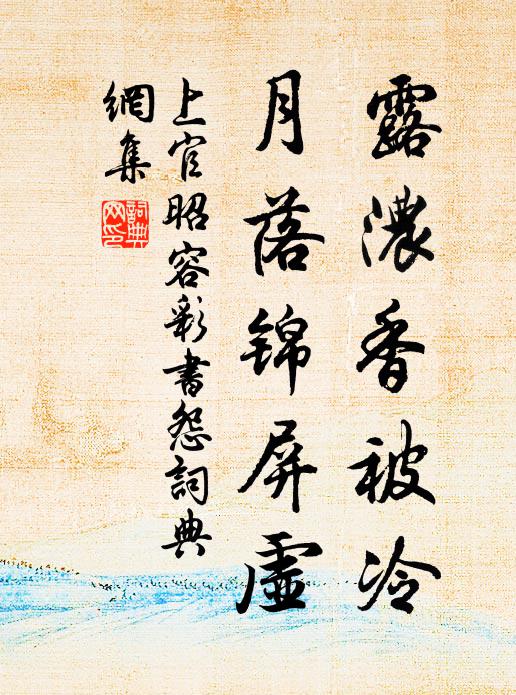 露濃香被冷
月落锦屏虛
上官昭容彩書怨詞典
網集
詞典
网印